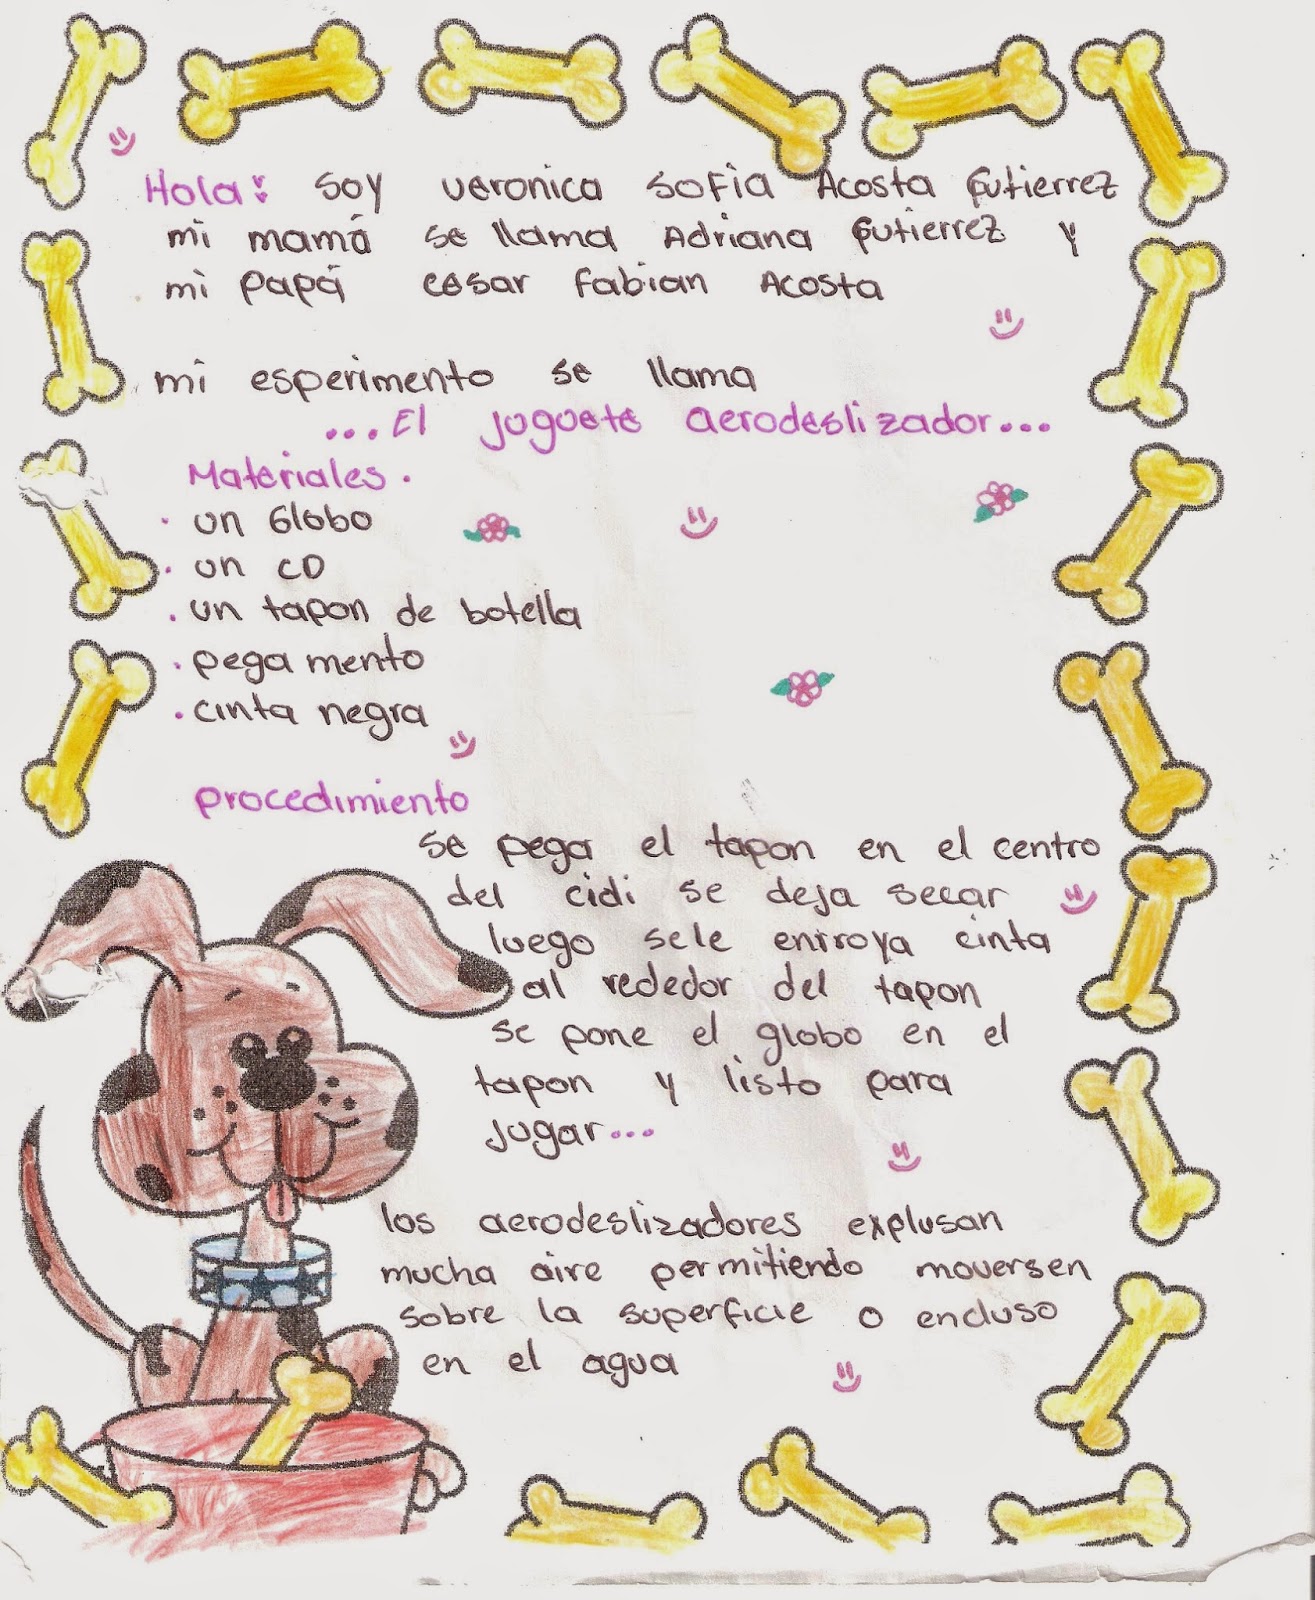 Hola! soy veronica sofia Acosta Gutierrez
mi mamá se llama Adriana Gutierrez y
mi papá cesar fabian Acosta
mi esperimento se llama
...El juguete aerodeslizador...
Materiales.
· un Globo
· un CD
· un tapon de botella
· pega mento
· cinta negra
procedimiento
se pega el tapon en el centro
del cidi se deja secar
luego sele enrroya cinta
al rededor del tapon
se pone el globo en el
tapon y listo para
jugar...
los aerodeslizadores explusan
mucha aire permitiendo moversen
sobre la superficie o encluso
en el agua